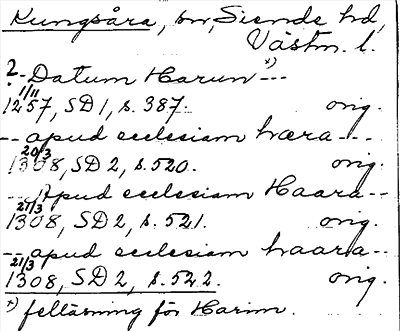 Kungsåra, sn, Siende hd,
Västm. l.
?- Datum Harun *) ---
1257 1/11, SD1, s. 387. orig.
--- apud ecclesiam hæra ---
1308 20/3, SD 2, s. 520. orig.
--- Apud ecclesiam Haara --
1308 21/3, SD 2, s. 521. orig.
--- apud ecclesiam haara --
1308 21/3, SD 2, s. 522. orig.
*) felläsning för Harim.